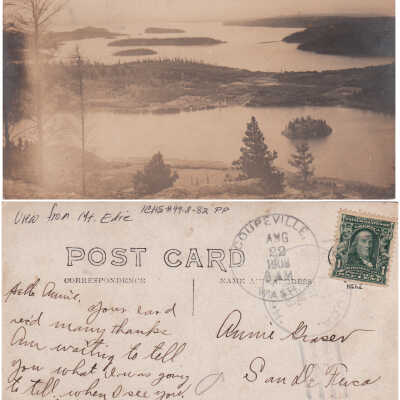 View from Mt. Erie
ICHS#99.8-82 PP
POST CARD
CORRESPONDENCE
NAME AND ADDRESS
COUPEVILLE,
AUG
22
AM
WASH.
Hello Annie,
Your card
rec'd many thanks
Am waiting to tell
you what I was going
to tell when I see you.
Annie
San De Fuca